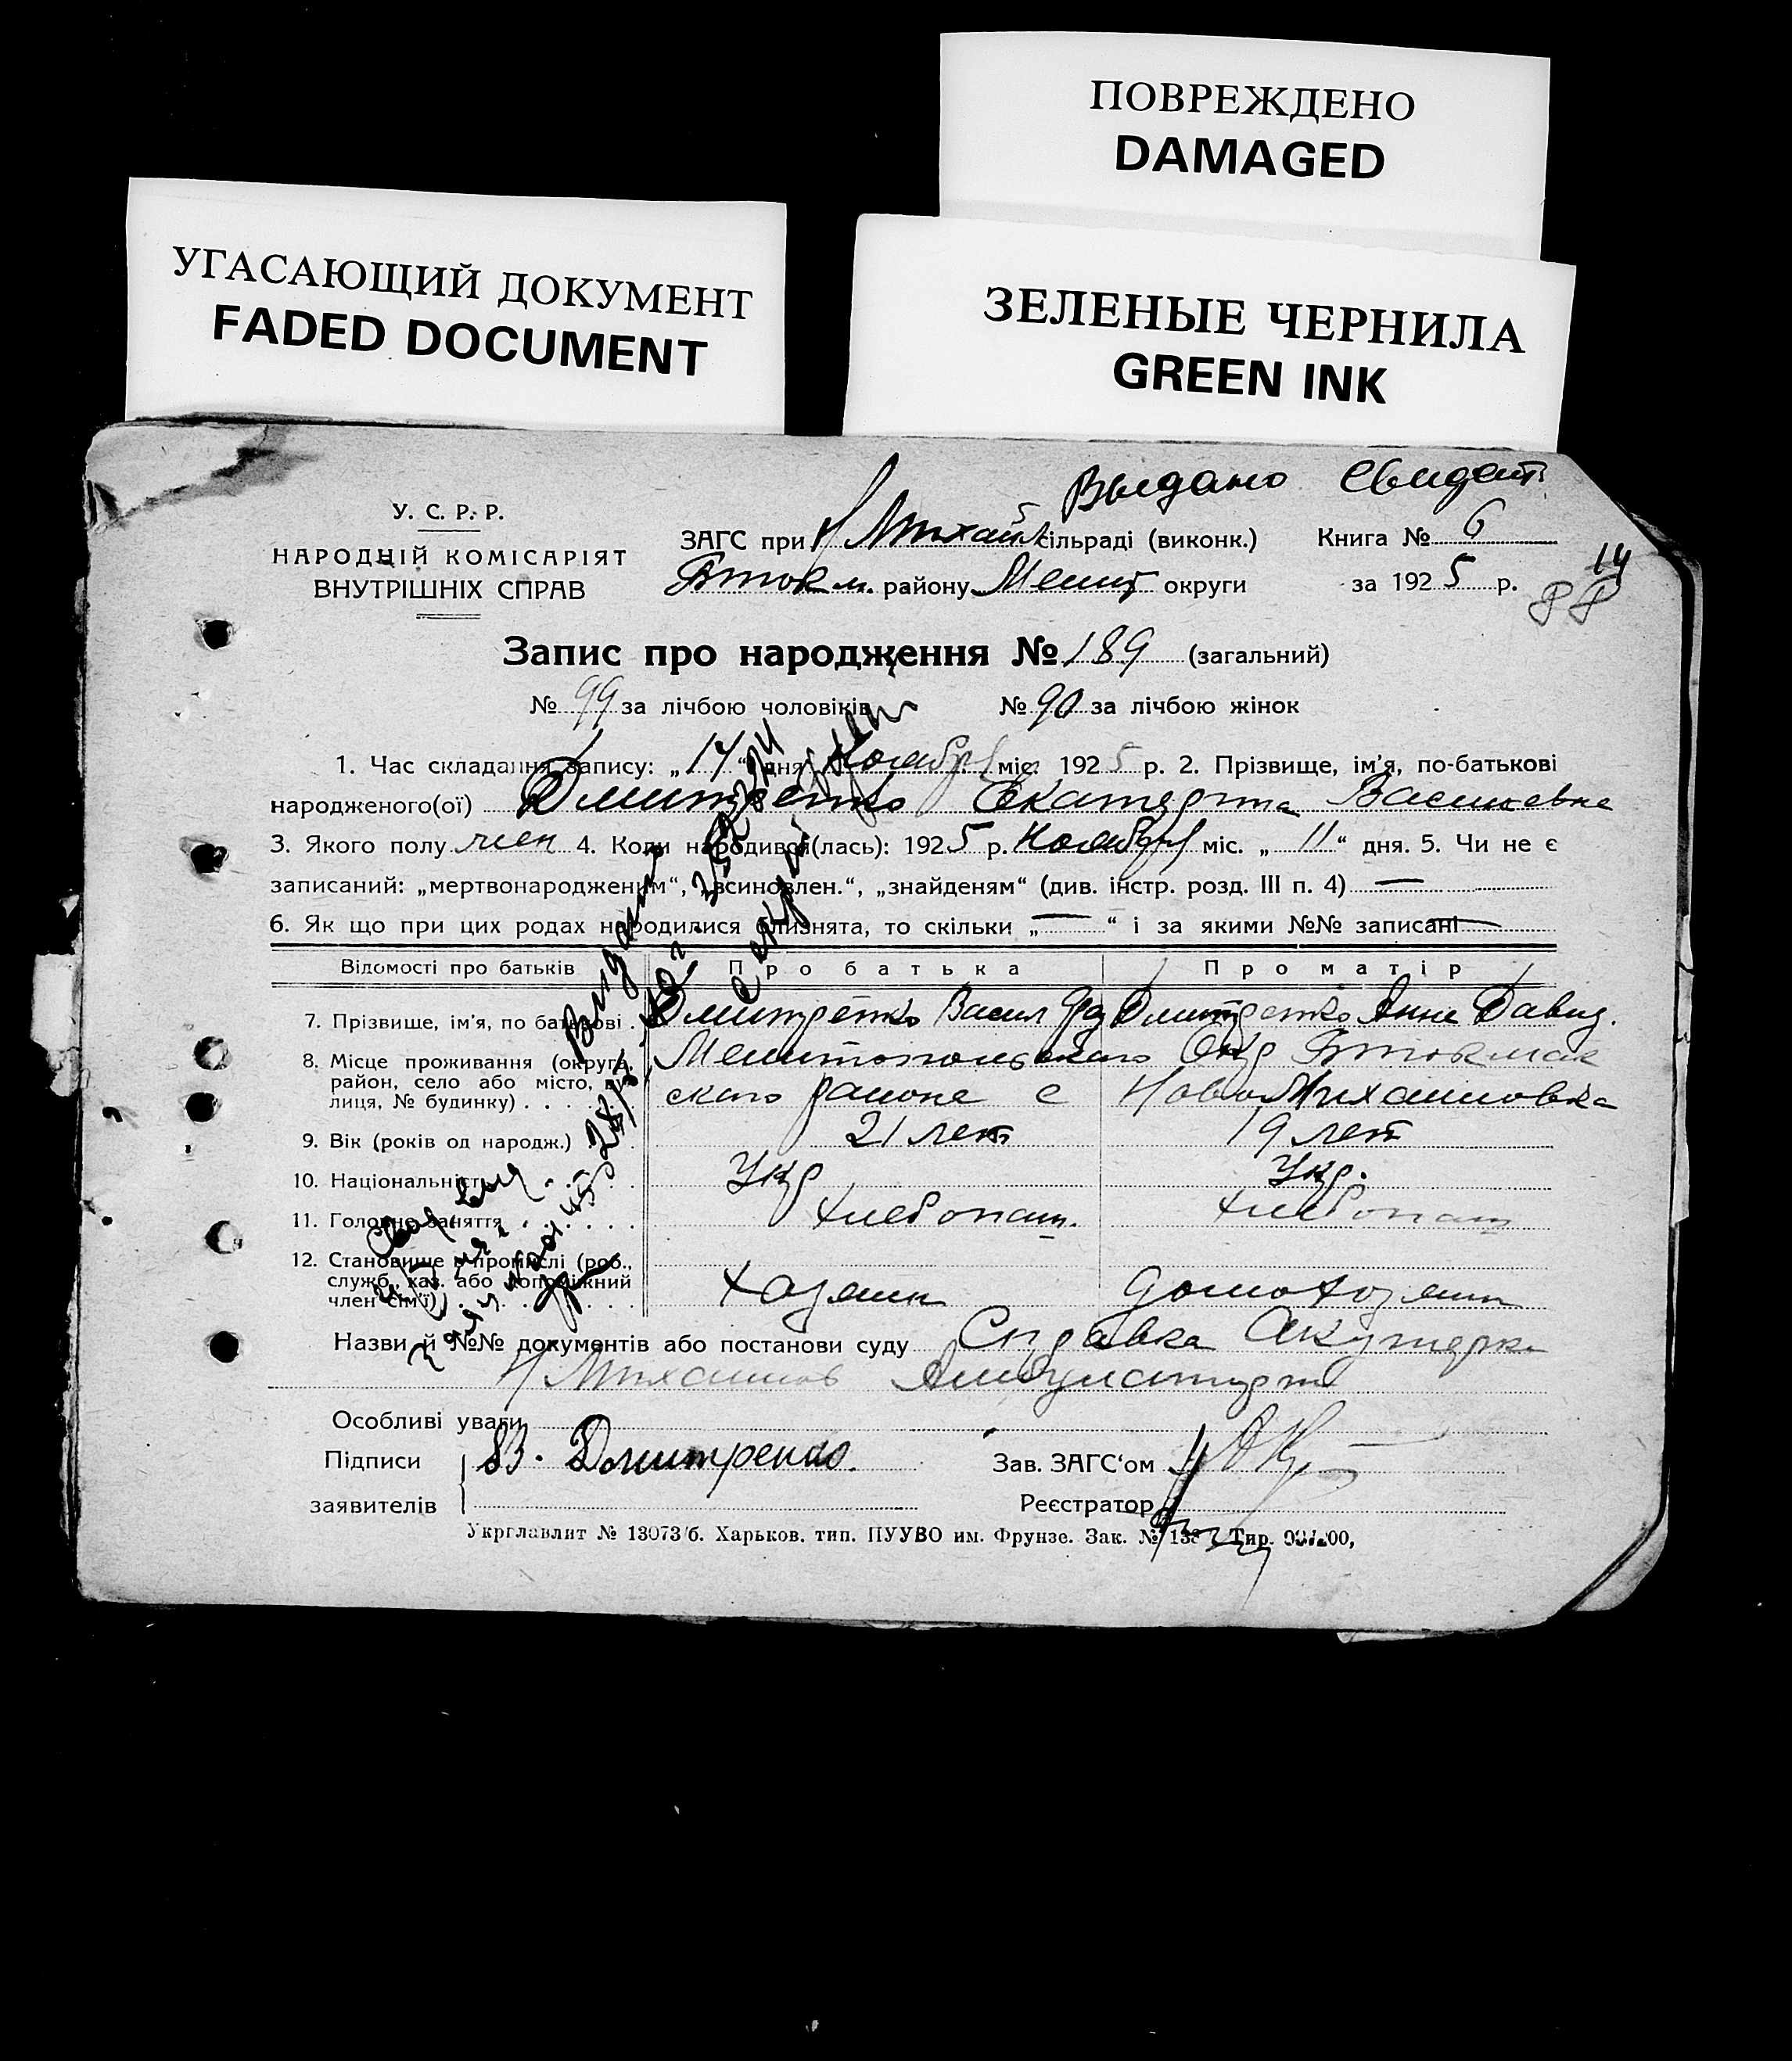 ПОВРЕЖДЕНО
DAMAGED
УГАСАЮЩИЙ ДОКУМЕНТ
FADED DOCUMENT
ЗЕЛЕНЫЕ ЧЕРНИЛА
GREEN INK
Выдано Свидет.
У. С. Р. Р.
НАРОДНІЙ КОМІСАРІЯТ
ВНУТРІШНІХ СПРАВ
ЗАГС при Н Михайл сільраді (виконк.) Книга № 6
Бток м. району Мелит округи за 1925 р.
14
88
Запис про народження № 189 (загальний)
№ 99 за лічбою чоловіків № 90 за лічбою жінок
1. Час складання запису: „14“ дня Ноября міс. 1925 р. 2. Прізвище, ім’я, по-батькові
народженого(ої) Дмитренко Екатерина Васильевна
3. Якого полу жен 4. Коли народився(лась): 1925 р. Ноября міс. „11“ дня. 5. Чи не є
записаний: „мертвонародженим“, „всиновлен.“, „знайденям“ (див. інстр. розд. III п. 4) —
6. Як що при цих родах народилися близнята, то скільки „—“ і за якими №№ записані —
Відомості про батьків Про батька Про матір
7. Прізвище, ім’я, по батькові . Дмитренко Васил Дмитренко Анна Давид.
8. Місце проживання (округа, район, село або місто, вулиця, № будинку) . . . Мелитопольского Окр Бтокмак
ского района с Ново Михайловка
9. Вік (років од народж.) 21 лет 19 лет
10. Національність . . . Укр Укр.
11. Головне заняття . . . . . Хлебопаш. Хлебопаш
12. Становище в промислі (роб., служб., хаз. або допоміжний член сім’ї) . . . Хозяин домохозяин
Назви й №№ документів або постанови суду Справка Акушерка
Н Михайлов Амбулатории
Особливі уваги
Підписи
заявителів
В. Дмитренко.
Зав. ЗАГС‘ом
Реєстратор
Укрглавлит № 13073/б. Харьков. тип. ПУУВО им. Фрунзе. Зак. №
Видано